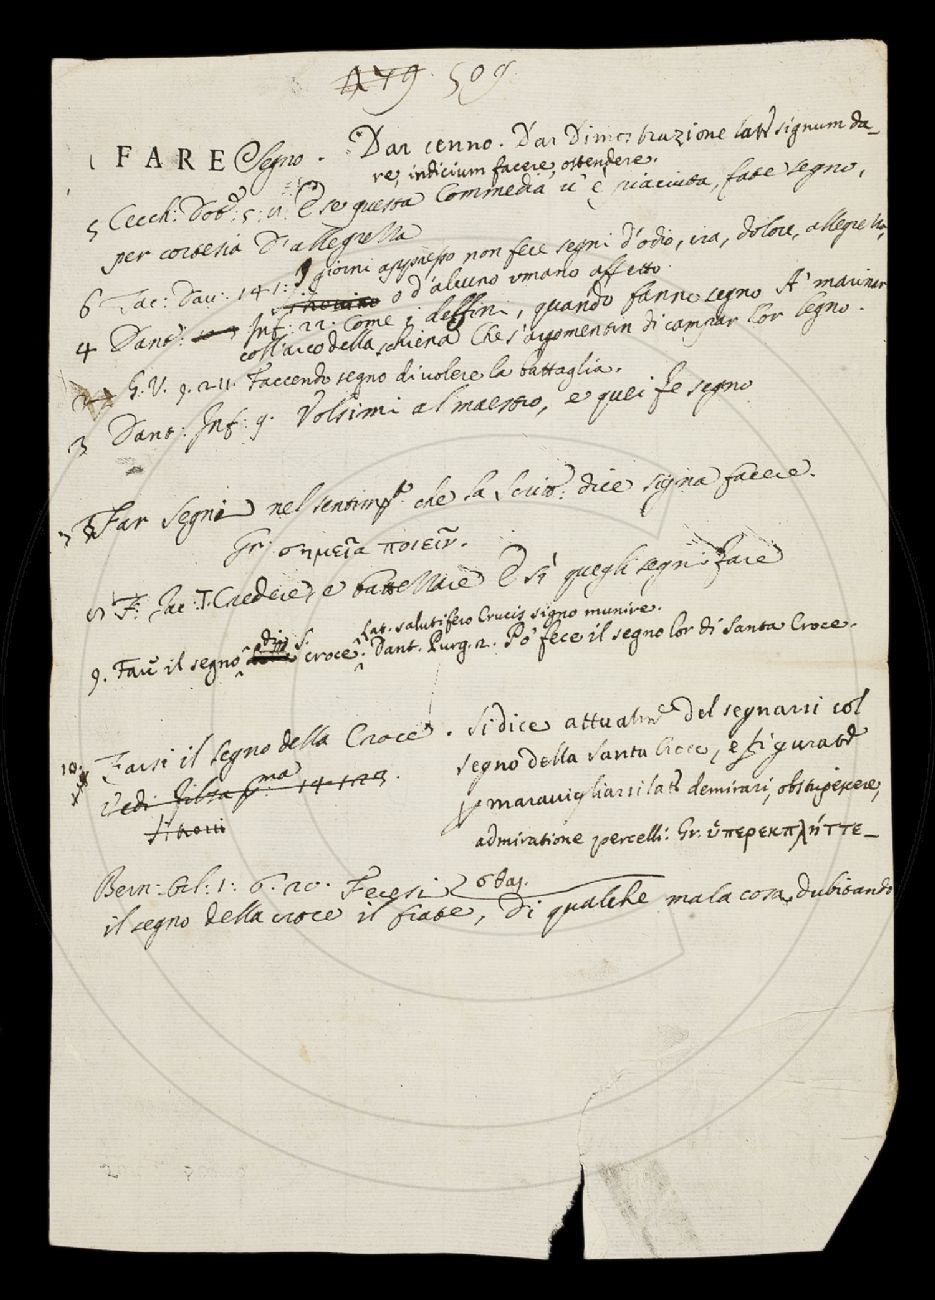 509
FARE Segno. Dar cenno. Dar Dimostrazione lat. signum da_
re, indicium facere, ostendere.
5 Cecch: Dot: 5: E se questa Commedia v' è piaciuta, fate segno,
per cortesia d'allegrezza
6 Tac: Dav: 141: giorni appresso non fece segni d'odio, ira, dolore, allegrezza,
o d'alcuno umano affetto
4 Dant: Inf: 22. Come i delfini, quando fanno segno A' mariner
coll'arco della schiena Che s'argomentin di campar lor legno.
2 G. V. 9. 211. Faccendo segno di volere la battaglia.
3 Dant: Inf: 9. Volsimi al maestro, e quei fe segno
Far Segni nel sentim.to che la Scritt: dice signa facere.
Gr: σημεῖα ποιεῖν.
8 F: Jac: T. Credere e battezzare E sì quegli segni fare
lat. salutifero Crucis signo munire.
9. Fare il segno di S. croce. Dant. Purg. 2. Po' fece il segno lor di Santa Croce.
10. Farsi il segno della Croce. Si dice attualm.e del segnarsi col
segno della Santa Croce, e figurat.e
p maravigliarsi lat. demirari, obstupescere,
admiratione percelli: Gr. ὑπερεκπλήττε_
σθαι.
Bern: Orl: 1: 6. 20. Fecesi
il segno della croce il frate, Di qualche mala cosa dubitando